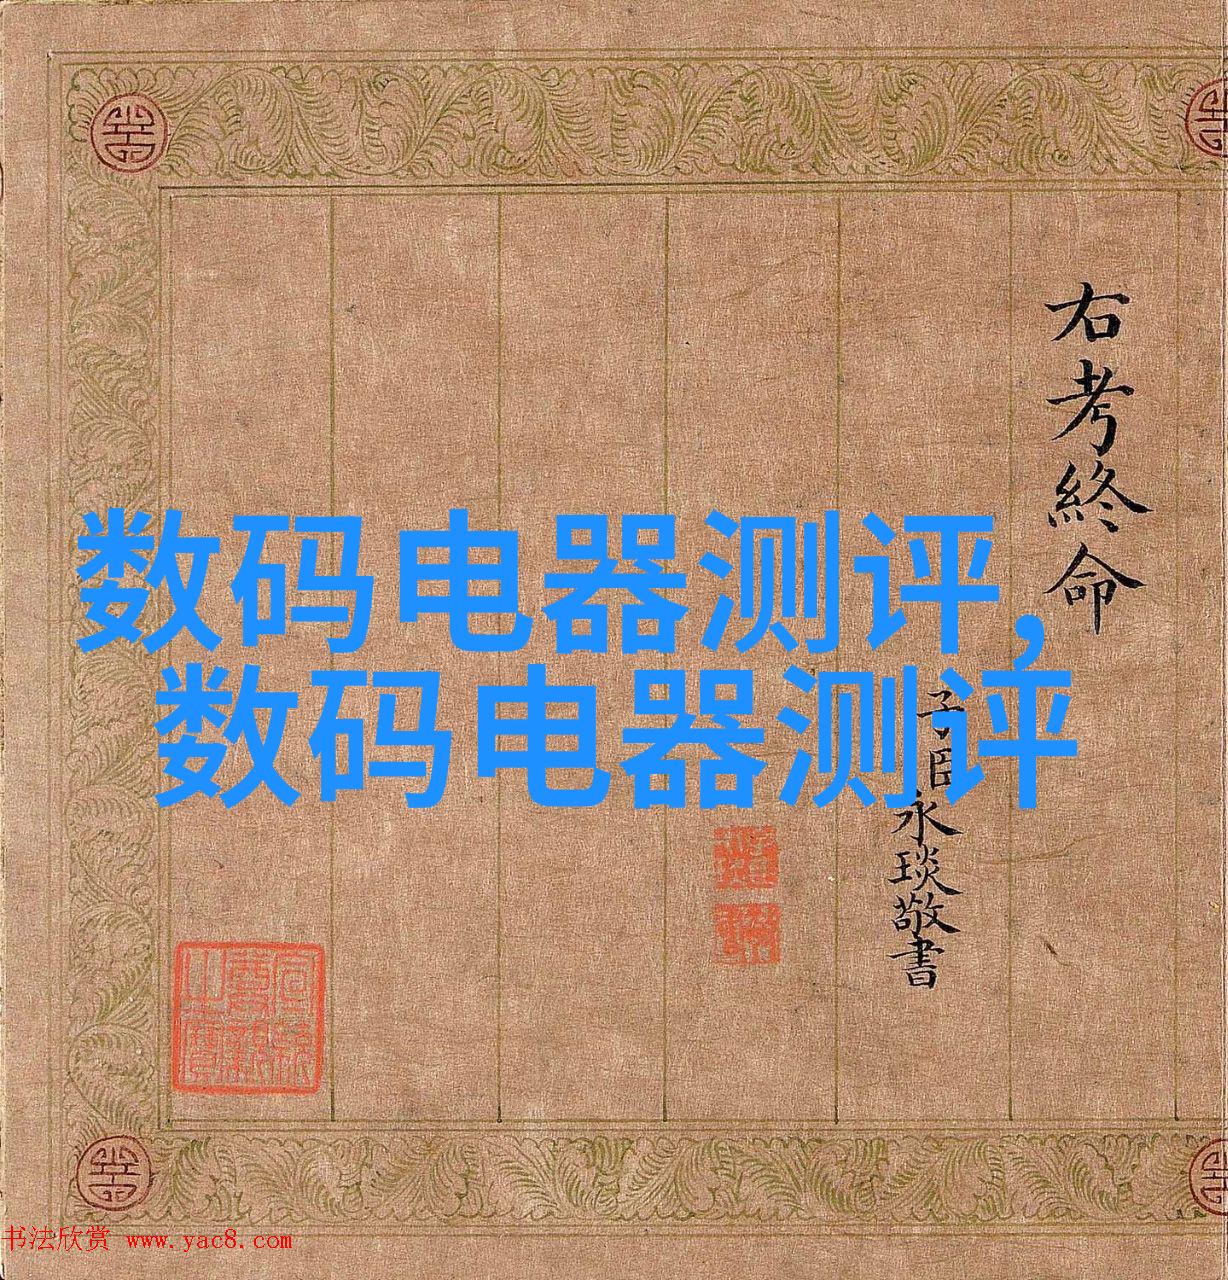 右考终命
子臣永琰敬書
数码电器测评,
数码电器测评
书法欣赏 www.yac8.com